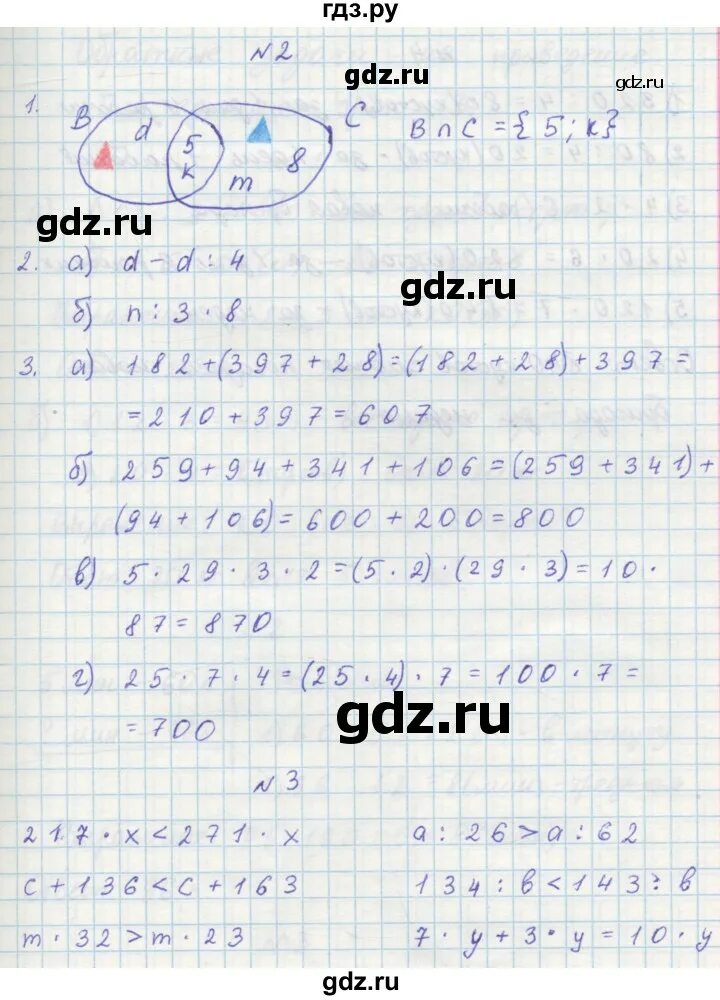 гдз.ру
№2
gdz.ru
gdz.ru
1.
B
d
5
к
m
8
C
B ∩ C = {5; к}
gdz.ru
2. а) d - d : 4
gdz.ru
б) n : 3 · 8
3. а) 182 + (397 + 28) = (182 + 28) + 397 =
= 210 + 397 = 607
б) 259 + 94 + 341 + 106 = (259 + 341) +
(94 + 106) = 600 + 200 = 800
в) 5 · 29 · 3 · 2 = (5 · 2) · (29 · 3) = 10 ·
87 = 870
г) 25 · 7 · 4 = (25 · 4) · 7 = 100 · 7 =
= 700
gdz.ru
№3
217 · x < 271 · x
a : 26 > a : 62
c + 136 < c + 163
134 : в < 143 : в
m · 32 > m · 23
7 · y + 3 · y = 10 · y
gdz.ru